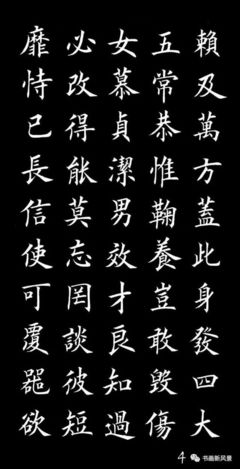 賴及萬方蓋此身發四大
五常恭惟鞠養豈敢毀傷
女慕貞潔男效才良知過
必改得能莫忘罔談彼短
靡恃已長信使可覆器欲
4 书画新风景